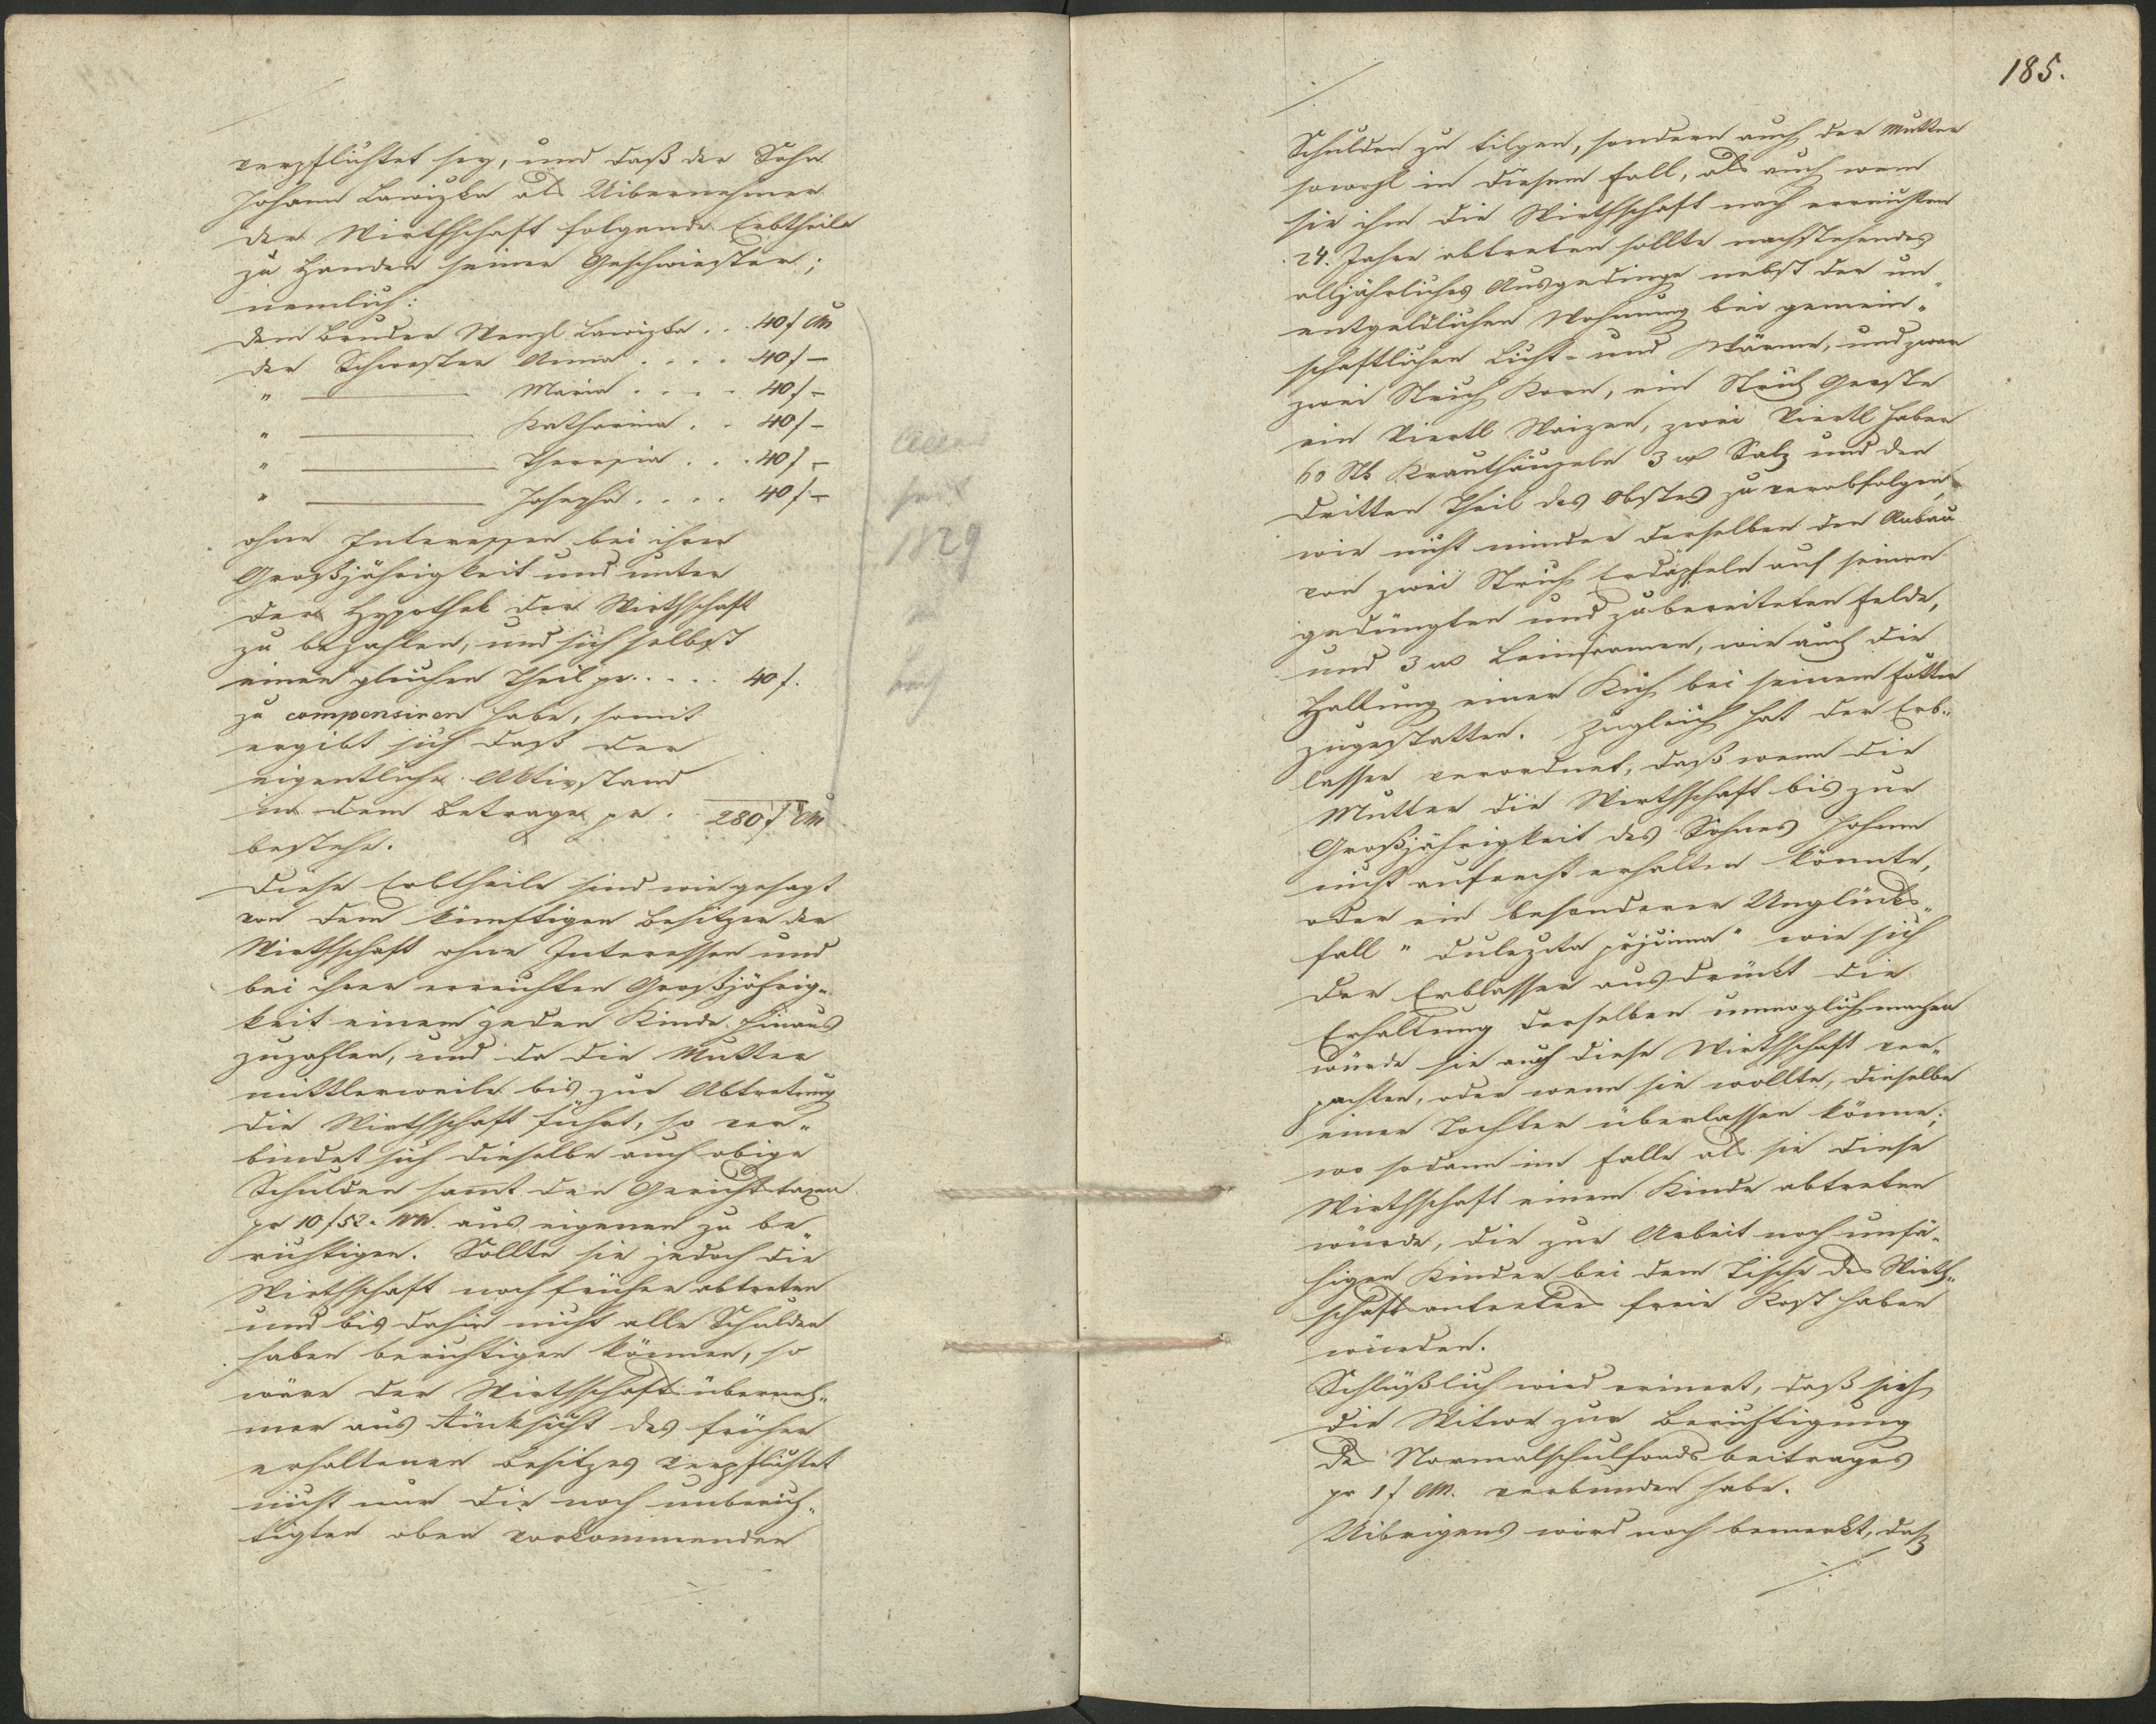 verpflichtet sey, und daß der Sohn
Johann Lawizka als Uibernehmer
der Wirthschaft folgende Erbtheile
zu Handen seiner Geschwiester;
nemlich:
dem Bruder Wenzl Lawizka . . . 40 f CM
der Schwester Anna . . . . 40 f –
" ——— Maria . . . . 40 f –
" ——— Katharina . . 40 f –
" ——— Theresia . . . 40 f –
" ——— Josepha . . . . 40 f –
ohne Interessen bei ihrer
Großjährigkeit und unter
der Hypothek der Wirthschaft
zu bezahlen, und sich selbst
einen gleichen Theil pr . . . . . 40 f.
zu compensiren habe, somit
ergibt sich daß der
eigentliche Aktivstand
in dem Betrage pr . . 280 f CM
bestehe.
Diese Erbtheile sind wie gesagt
von dem künftigen Besitzer der
Wirthschaft ohne Interessen und
bei ihrer erreichten Großjährig-
keit einem jeden Kinde hinaus
zuzahlen, und da die Mutter
mittlerweile bis zur Abtretung
die Wirthschaft führt, so ver-
bindet sich dieselbe auch obige
Schulden sammt den Gerichtstaxen
pr 10 f 52 x WW. aus eigenen zu be-
richtigen. Sollte sie jedoch die
Wirthschaft noch früher abtreten
und bis dahin nicht alle Schulden
haben berichtigen können, so
wäre der Wirthschaftsüberneh-
mer aus Rücksicht des früher
erhaltenen Besitzes verpflichtet
nicht nur die noch unberich-
tigten oben vorkommenden
seit
1829
185.
Schulden zu tilgen, sondern auch der Mutter
sowohl in diesem Fall, als auch wenn
sie ihm die Wirthschaft nach erreichten
24. Jahre abtreten sollte nachstehendes
alljährliches Ausgedinge nebst der un-
entgeldlichen Wohnung bei gemein-
schaftlichen Licht- und Wärme, und zwar
zwei Strich Korn, ein Strich Gerste
ein Viertl Waizen, zwei Viertl Haber
60 Stk Krauthäupeln 3 Salz und den
dritten Theil des Obstes zu verabfolgen,
wie nicht minder derselben den Anbau
von zwei Strich Erdäpfeln auf seinen
gedüngten und zubereiteten Felde,
und 3 Leinsaamen, wie auch die
Haltung einer Kuh bei seinem Futter
zugestatten. Zugleich hat der Erb-
lasser verordnet, daß wenn die
Mutter die Wirthschaft bis zur
Großjährigkeit des Sohnes Johann
nicht aufrecht erhalten könnte,
oder ein besonderer Unglücks-
fall " dulezita přjčina " wie sich
der Erblasser ausdrückt die
Erhaltung derselben unmöglich machen
würde sie auch diese Wirthschaft ver-
pachten, oder wenn sie wollte, dieselbe
einer Tochter überlassen könne;
wo sodann im Falle als sie diese
Wirthschaft einem Kinde abtreten
würde, die zur Arbeit noch unfä-
higen Kinder bei dem Tische des Wirth-
schaftsantreters freie Kost haben
würden.
Schlüßlich wird erinert, daß sich
die Witwe zur Berichtigung
des Normalschulfondsbeitrages
pr 1 f CM. verbunden habe.
Uibrigens wird noch bemerkt, daß